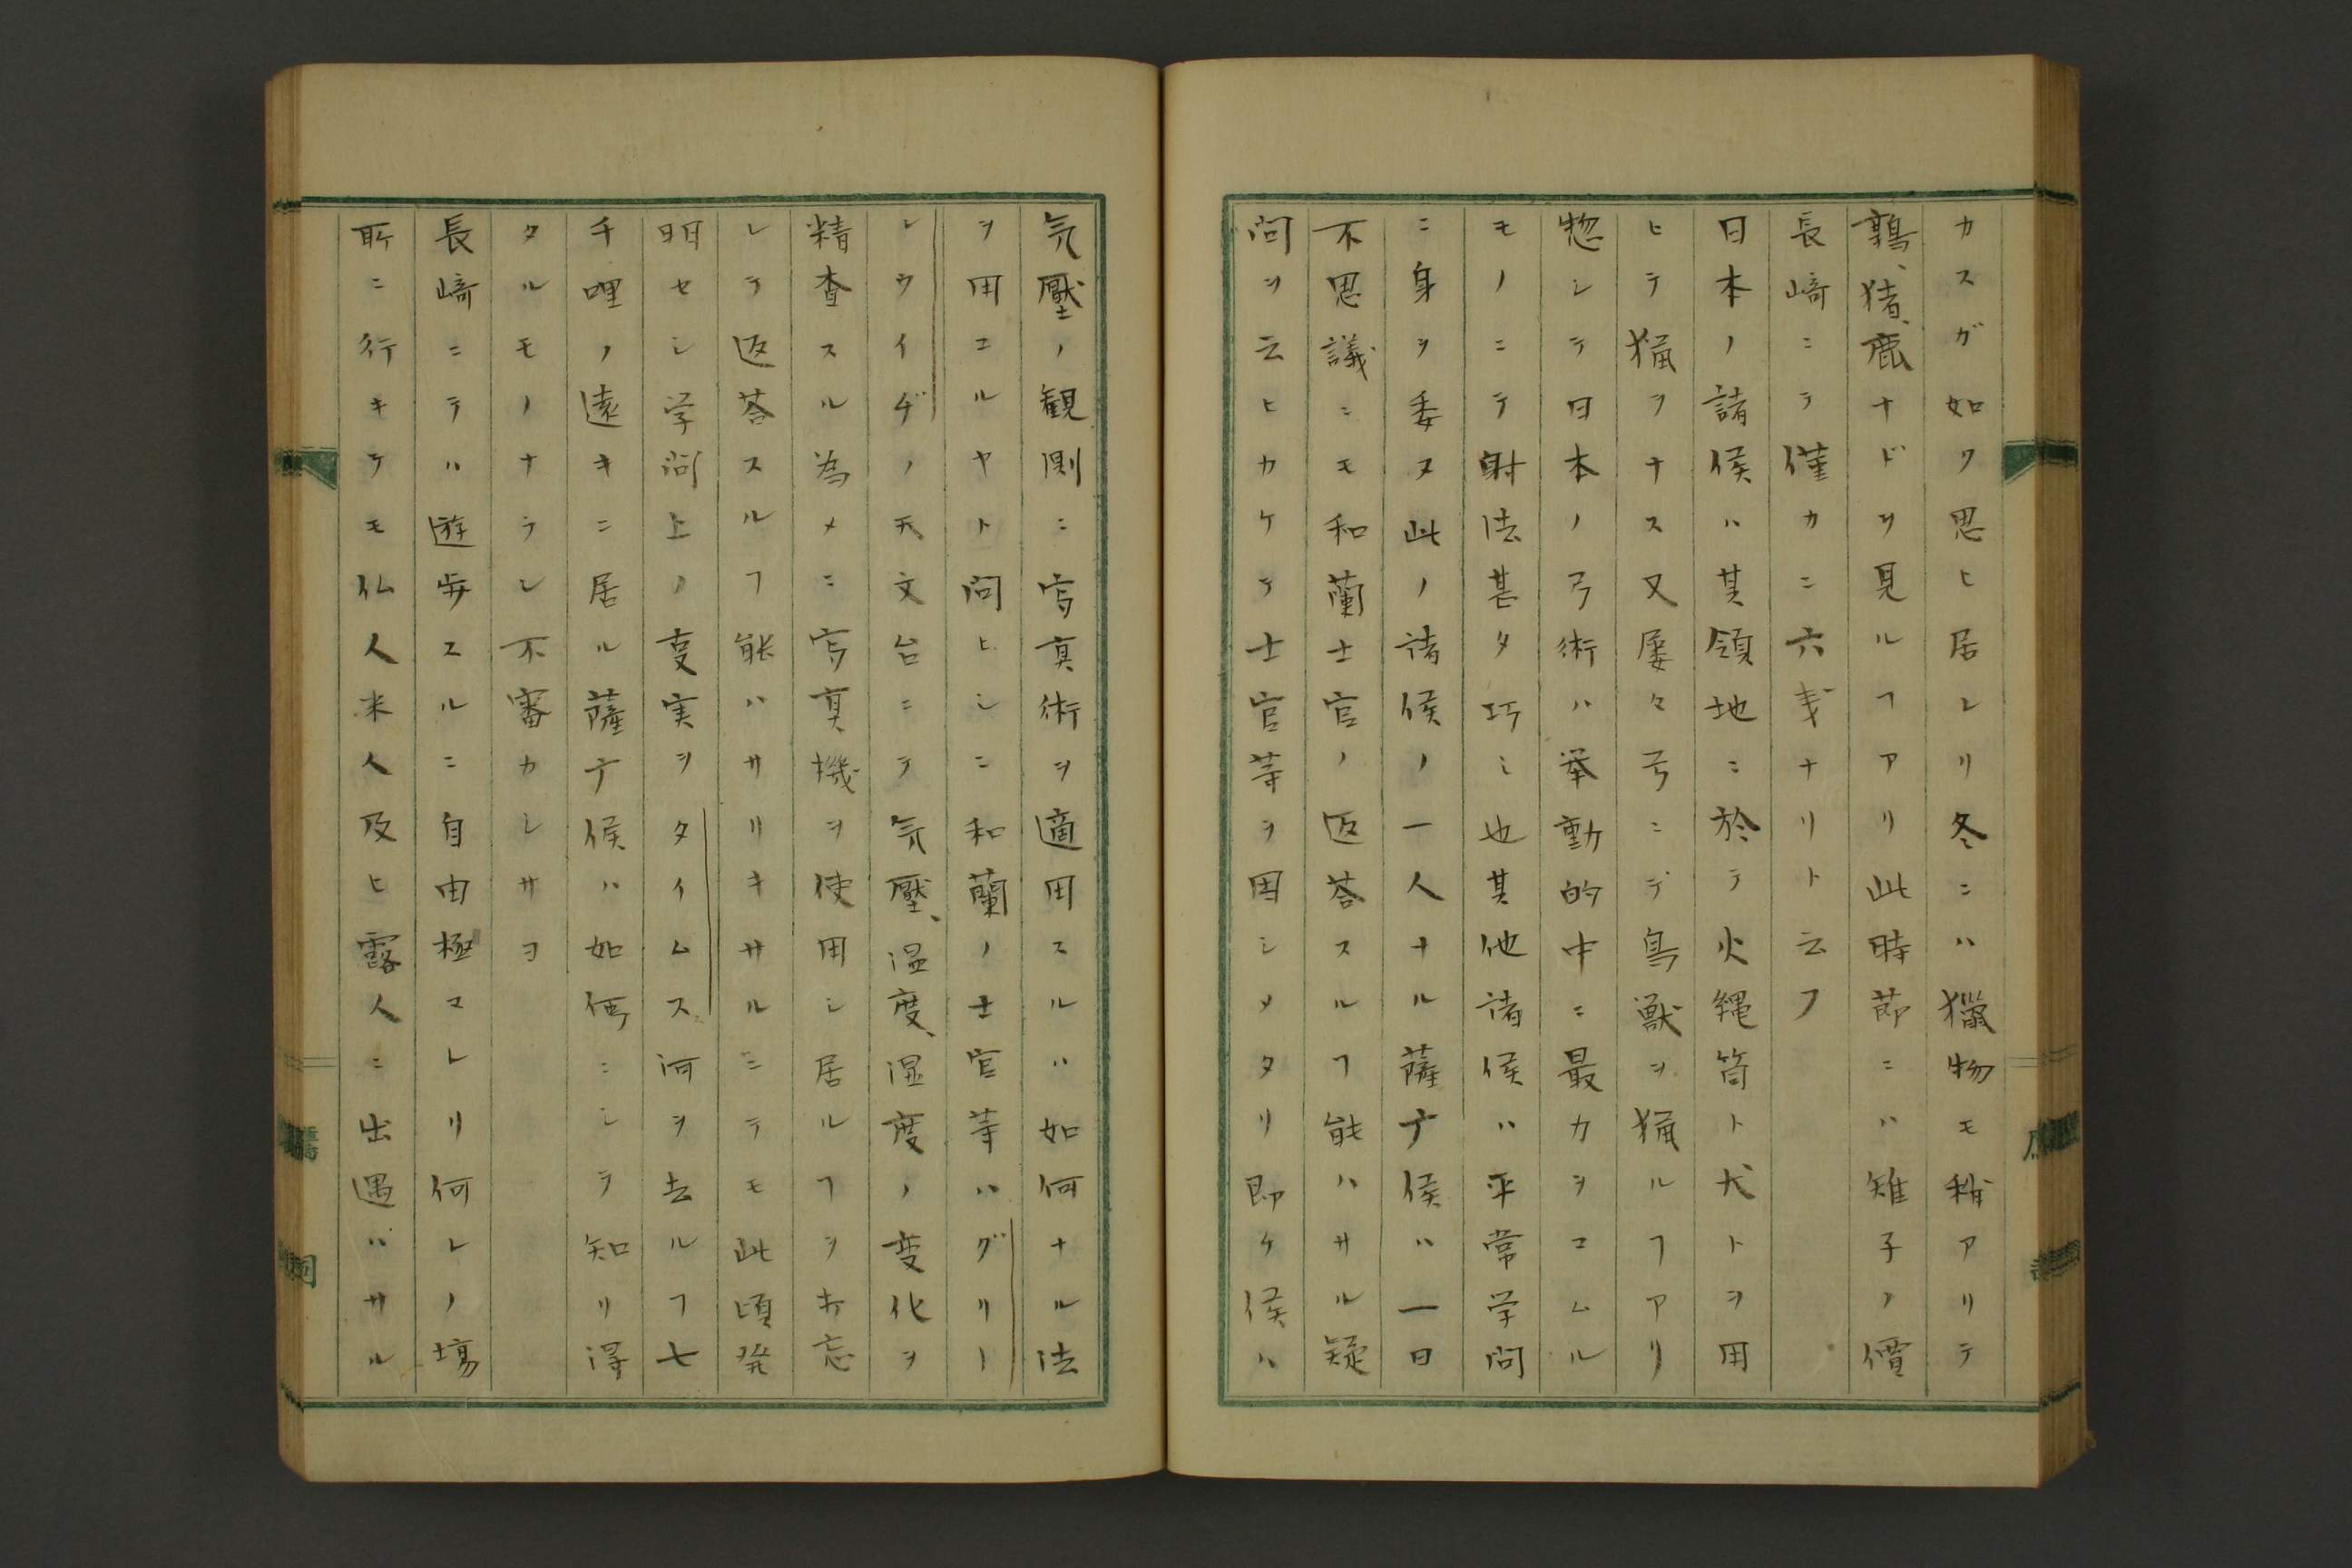 カスガ如ク思ヒ居レリ冬ニハ獵物モ稍アリテ
鶉、猪、鹿ナドヲ見ルヿアリ此時節ニハ雉子ノ價
長﨑ニテ僅カニ六
日本ノ諸侯ハ其領地ニ於テ火縄筒ト犬トヲ用
ヒテ猟ヲナス又屡々弓ニテ鳥獣ヲ猟ルヿアリ
惣シテ日本ノ弓術ハ挙動的中ニ最カヲコムル
モノニテ射法甚タ巧ミ也其他諸侯ハ平常学問
ニ身ヲ委ヌ此ノ諸侯ノ一人ナル薩广侯ハ一日
不思議ニモ和蘭士官ノ返荅スルヿ能ハサル疑
問ヲ云ヒカケテ士官等ヲ困シメタリ即ケ侯ハ
気壓ノ観測ニ写真術ヲ適用スルハ如何ナル法
ヲ用エルヤト問ヒシニ和蘭ノ士官等ハグリー
ンウイヂノ天文台ニテ気壓、温度、湿度ノ変化ヲ
精査スル為メニ写真機ヲ使用シ居ルヿヲ忘
レテ返荅スルヿ能ハサリキサルニテモ此頃発
明セシ学問上ノ事実ヲタイムス河ヲ去ルヿ七
千哩ノ遠キニ居ル薩广侯ハ如何ニシテ知リ得
タルモノナラン不審カシサヨ
長﨑ニテハ遊歩スルニ自由極マレリ何レノ場
所ニ行キテモ仏人米人及ヒ露人ニ出遇ハサル